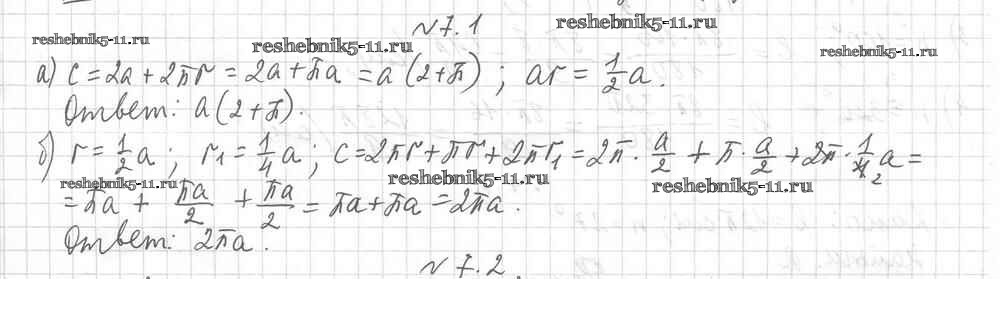 №7.1
reshebnik5-11.ru
reshebnik5-11.ru
reshebnik5-11.ru
reshebnik5-11.ru
а) C = 2a + 2πr = 2a + πa = a (2+π) ; ar = 1/2 a.
Ответ: a (2+π).
б) r = 1/2 a ; r₁ = 1/4 a ; C = 2πr + πr + 2πr₁ = 2π · a/2 + π · a/2 + 2π · 1/4 2 a =
reshebnik5-11.ru
reshebnik5-11.ru
reshebnik5-11.ru
= πa + πa/2 + πa/2 = πa + πa = 2πa.
Ответ: 2πa.
№7.2.